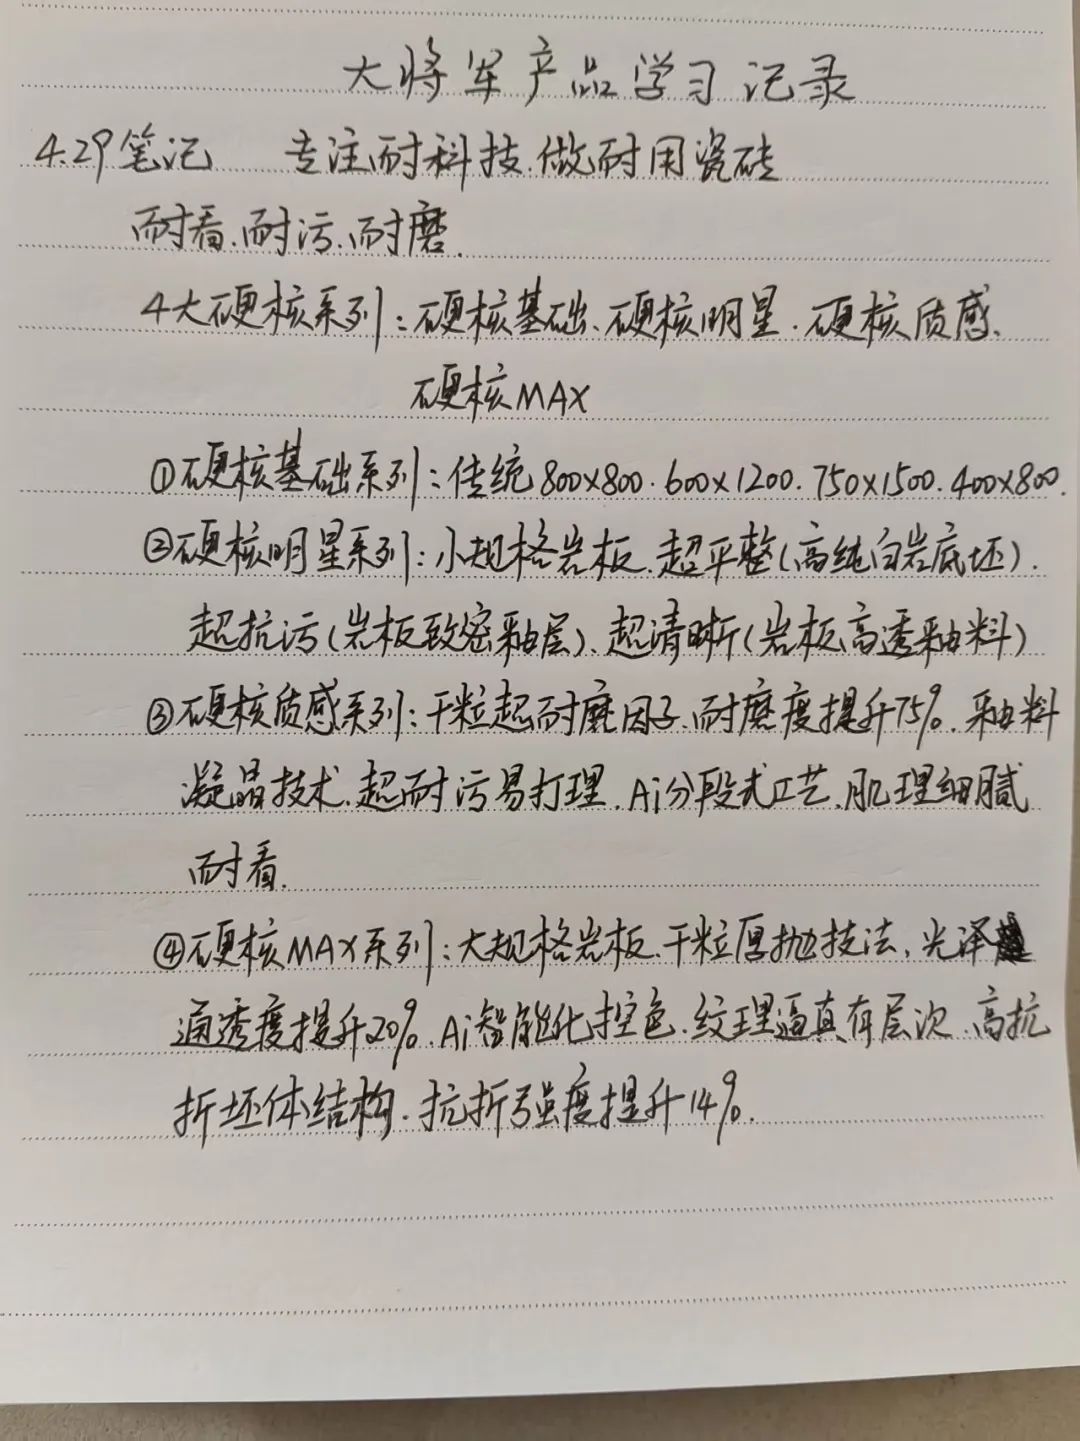 大将军产品学习记录
4.29笔记 专注耐科技.做耐用瓷砖
耐看.耐污.耐磨.
4大硬核系列:硬核基础、硬核明星.硬核质感、
硬核MAX
①硬核基础系列:传统800x800.600x1200.750x1500.400x800.
②硬核明星系列:小规格岩板.超平整(高纯白岩底坯).
超抗污(岩板致密釉层)、超清晰(岩板高透釉料)
③硬核质感系列:干粒超耐磨因子.耐磨度提升75%.釉料
凝晶技术.超耐污易打理.Ai分段式工艺.肌理细腻
耐看.
④硬核MAX系列:大规格岩板.干粒厚抛技法,光泽
通透度提升20%.Ai智能化控色.纹理逼真有层次.高抗
折坯体结构.抗折强度提升14%.